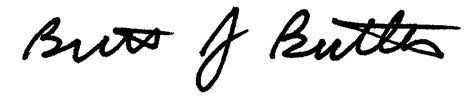 Brett J Butler